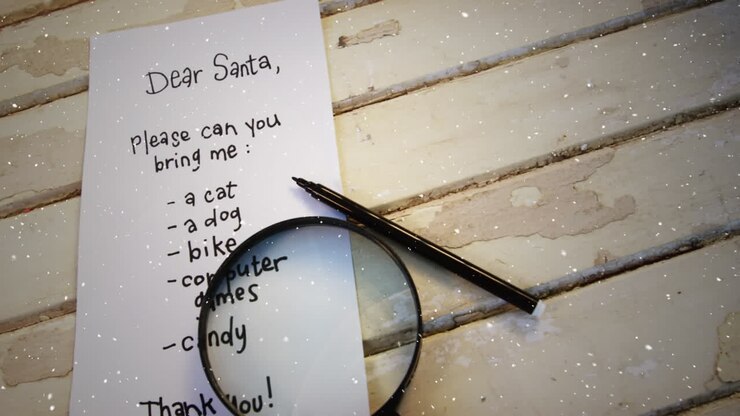 Dear Santa,
please can you
bring me :
- a cat
- a dog
- bike
- computer
games
- candy
Thank you!